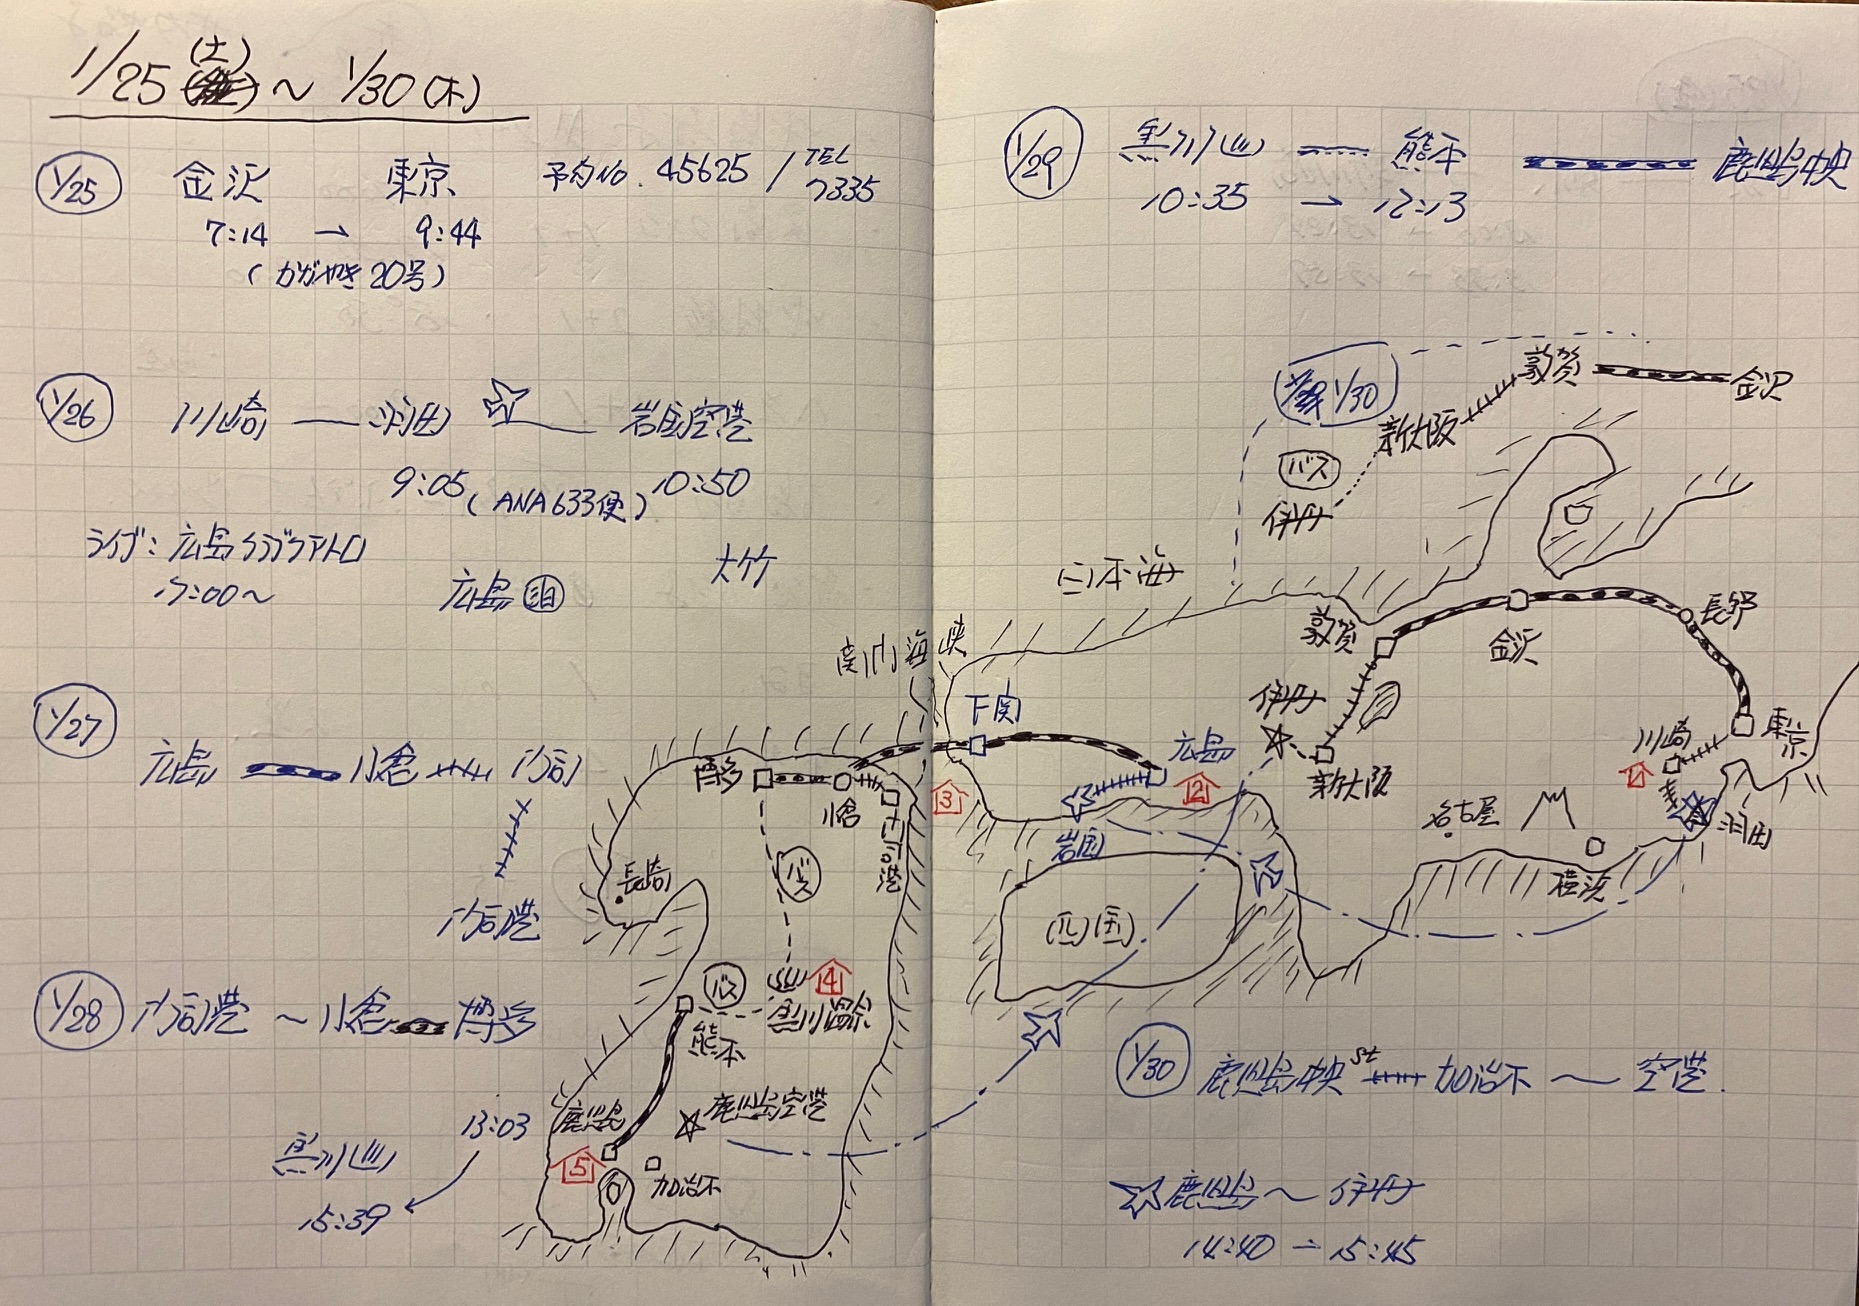 1/25(土)～1/30(木)
1/25 金沢 東京 予約No. 45625 / TEL
7335
7:14 → 9:44
(かがやき20号)
1/26 川崎 羽田 岩国空港
9:05 (ANA633便) 10:50
ライブ:広島クラブクアトロ
17:00～
広島 泊
大竹
1/27
広島 小倉 門司
門司港
1/28 門司港 ～ 小倉 博多
13:03
黒川
15:39
1/29 黒川 熊本 鹿児島中央
10:35 → 12:13
1/30
敦賀 金沢
新大阪
バス
伊丹
日本海
関門海峡
下関
広島
2
3
岩国
四国
敦賀
金沢
長野
東京
川崎
1
羽田
横浜
名古屋
伊丹
新大阪
博多
小倉
門司港
長崎
バス
4
黒川温泉
バス
熊本
鹿児島空港
鹿児島
5
加治木
1/30 鹿児島中央st 加治木 ～ 空港.
鹿児島～伊丹
14:40 → 15:45